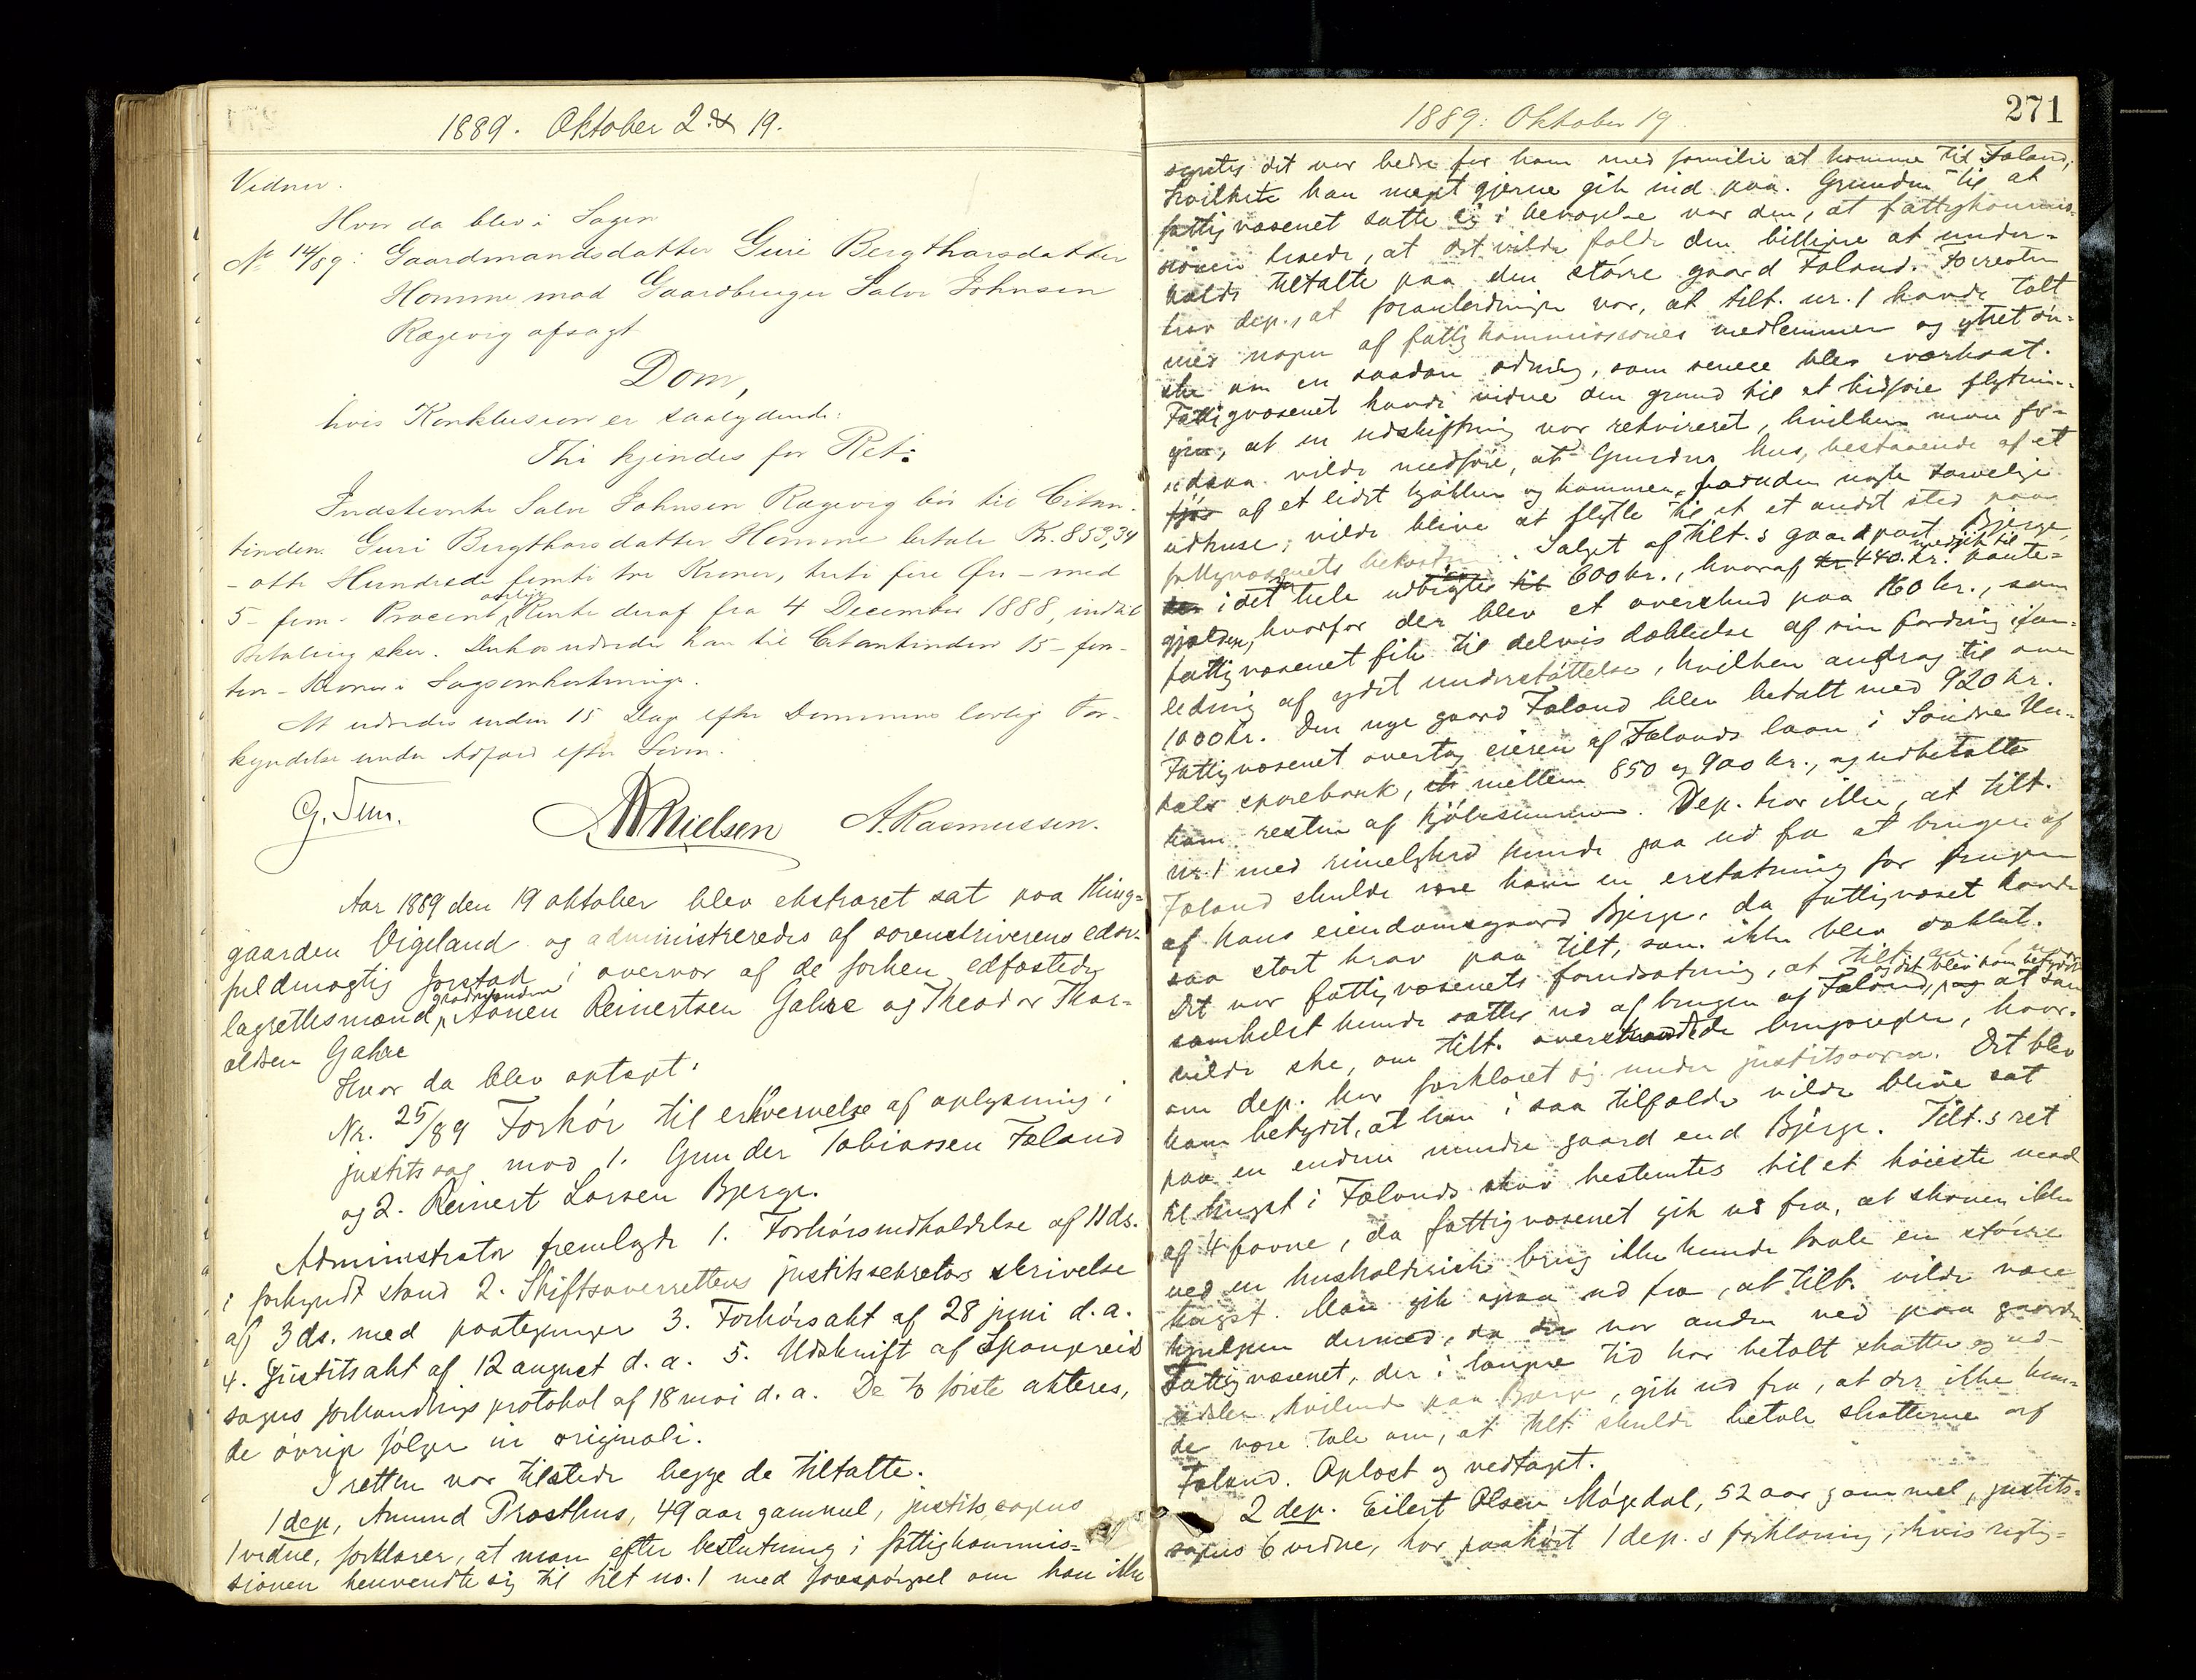 1889. Oktober 2 & 19.
Vidner.
Hvor da blev i Sagen
No 14/89: Gaardmandsdatter Guri Bergthorsdatter
Homme mod Gaardbruger Salve Johnsen
Rægevig afsagt
Dom,
hvis Konklusion er saalydende:
Thi kjendes for Ret:
Indstevnte Salve Johnsen Rægevig bør til Citan-
tinden Guri Bergthorsdatter Homme betale Kr. 853,34
- otte Hundrede femti tre Kroner, treti fire Øre - med
5 - fem - Procent aarlig Rente deraf fra 4 December 1888, indtil
Betaling sker. Derhos udreder han til Citantinden 15 - fem-
ten - Kroner i Sagsomkostninger.
At udredes inden 15 Dage efter Dommens lovlig For-
kyndelse under Adfærd efter Loven.
Nielsen A. Rasmussen.
Aar 1889 den 19 oktober blev ekstraret sat paa thing-
gaarden Vigeland og administreredes af sorenskriverens edsv.
fuldmægtig Jorstad i overvær af de forhen edfæstede
lagrettesmænd, gaardmændene Aanen Reinertsen Gahre og Theodor Thor-
aldsen Gahre
Hvor da blev optaget:
Nr. 25/89 Forhør til erhvervelse af oplysning i
justitssag mod 1. Gunder Tobiassen Faland
og 2. Reinert Larsen Bjerge.
Administrator fremlagde 1. Forhørsindkaldelse af 11 ds.
i forkyndt stand 2. Stiftsoverrettens justitssekretærs skrivelse
af 3 ds. med paategninger 3. Forhørsakt af 28 juni d. a.
4. Justitsakt af 12 august d. a. 5. Udskrift af Spangereid
sogns forhandlingsprotokol af 18 mai d. a. De to første akteres,
de øvrige følger in originali.
I retten var tilstede begge de tiltalte.
1 dep, Amund Prosthus, 49 aar gammel, justitssagens
1 vidne, forklarer, at man efter beslutning i fattigkommis-
sionen henvendte sig til tilt no. 1 med forespørgsel om han ikke
1889: Oktober 19. 271
syntes det var bedre for ham med familie at komme til Faland,
hvilket han meget gjerne gik ind paa. Grunden til, at
fattigvæsenet satte sig i bevægelse var den, at fattigkommis-
sionen troede, at det vilde falde den billigere at under-
holde tiltalte paa den større gaard Faland. Forresten
tror dep., at foranledningen var, at tilt. nr. 1 havde talt
med nogen af fattigkommissionens medlemmer og ytret øn-
ske om en saadan ordning, som senere blev iværksat.
Fattigvæsenet havde videre den grund til at tidføie flytnin-
gen, at en udskiftning var rekvireret, hvilken man for-
udsaa vilde medføre, at Gunders hus, bestaaende af et
af et lidet kjøkken og kammer, foruden nogle tarvelige
udhuse, vilde blive at flytte til et andet sted paa
fattigvæsenets bekostning. Salget af tilt.s gaardpart Bjerge,
i det hele udbragtes 600 kr., hvoraf 440 kr. medgik til pante-
gjælden, hvorfor der blev et overskud paa 160 kr., som
fattigvæsenet fik til delvis dækkelse af sin fordring i an-
ledning af ydet understøttelse, hvilken androg til over
1000 kr. Den nye gaard Faland blev betalt med 920 kr.
Fattigvæsenet overtog eieren af Falands laan i Søndre Un-
dals sparebank, mellem 850 og 900 kr., og udbetalte
ham resten af kjøbesummen. Dep. tror ikke, at tilt.
nr. 1 med rimelighed kunde gaa ud fra at brugen af
Faland skulde være ham en erstatning for brugen
af hans eiendomsgaard Bjerge, da fattigvæsenet havde
saa stort krav paa tilt, som ikke blev dækket.
Det var fattigvæsenets forudsætning, at tilt
somhelst kunde sættes ud af brugen af Faland, og det blev ham betydet at saa
vilde ske, om tilt. overskred de brugsregler, hvor-
om dep. har forklaret sig under justitssagen. Det blev
ham betydet, at han i saa tilfælde vilde blive sat
paa en endnu mindre gaard end Bjerge. Tilt.s ret
til hugst i Falands skov bestemtes til et høieste maal
af 4 favne, da fattigvæsenet gik ud fra, at skoven ikke
ved en husholderisk brug ikke kunde taale en større
hugst. Man gik ogsaa ud fra, at tilt. vilde være
hjulpen dermed, da der var anden ved paa gaarden.
Fattigvæsenet, der i længere tid har betalt skatter og ud-
redsler hvilende paa Bjerge, gik ud fra, at der ikke kun-
de være tale om, at tilt skulde betale skatterne af
Faland. Oplæst og vedtaget.
2 dep. Eilert Olsen Møgedal, 52 aar gammel, justits-
sagens 6 vidne, har paahørt 1 dep.s forklaring, hvis rigtig-